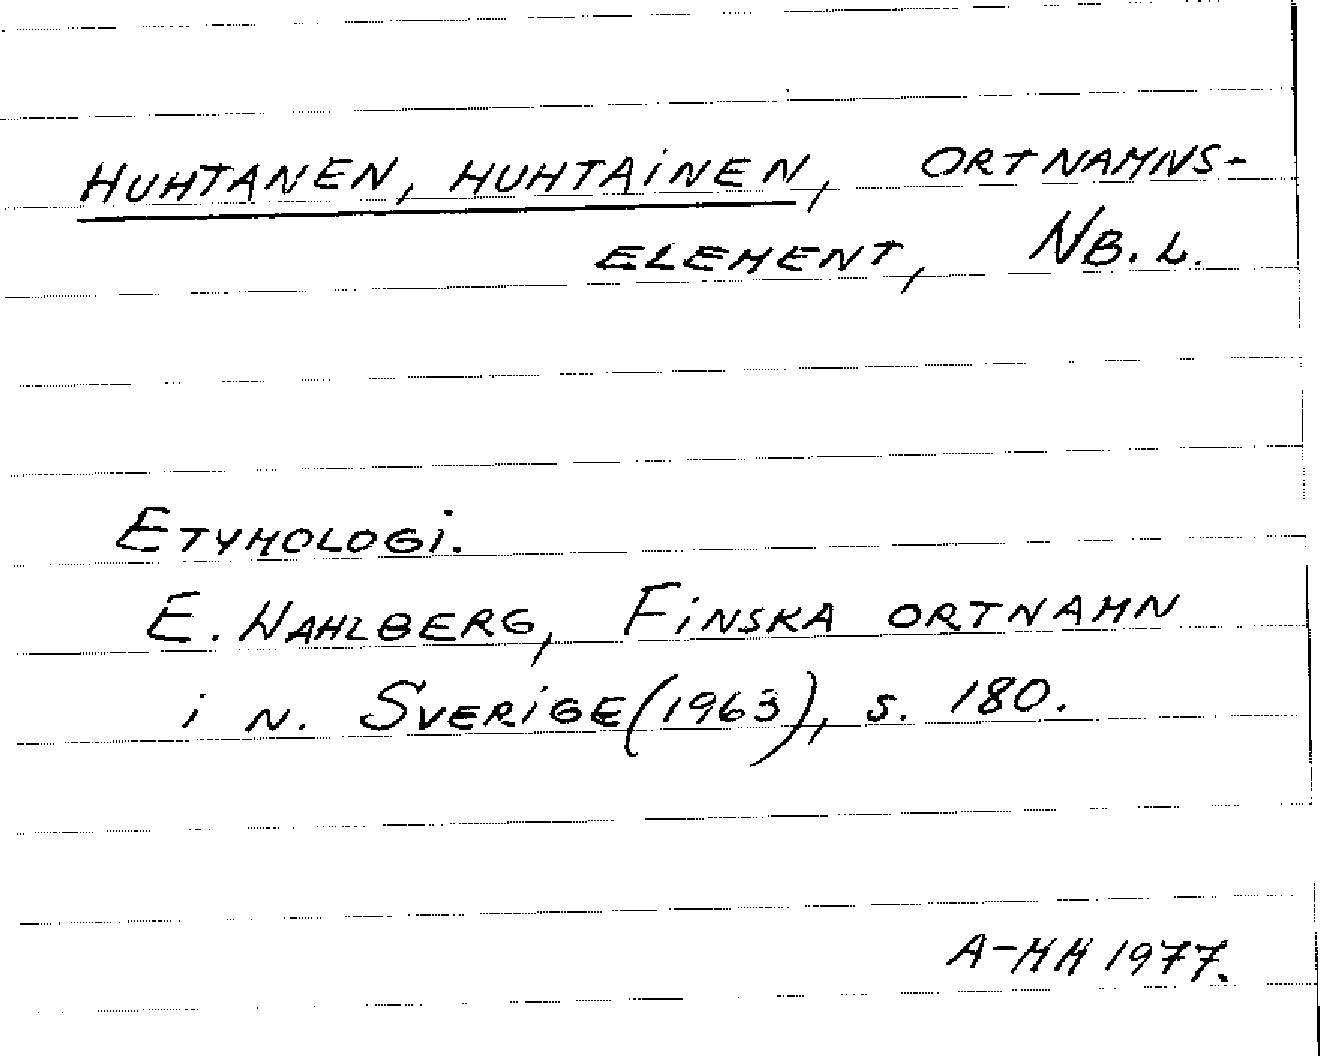 HUHTANEN, HUHTAiNEN, ORTNAMNS-
ELEMENT, NB. L.
ETYMOLOGi.
E. WAHLBERG, FiNSKA ORTNAMN
i N. SVERiGE (1963), S. 180.
A-MH 1977.